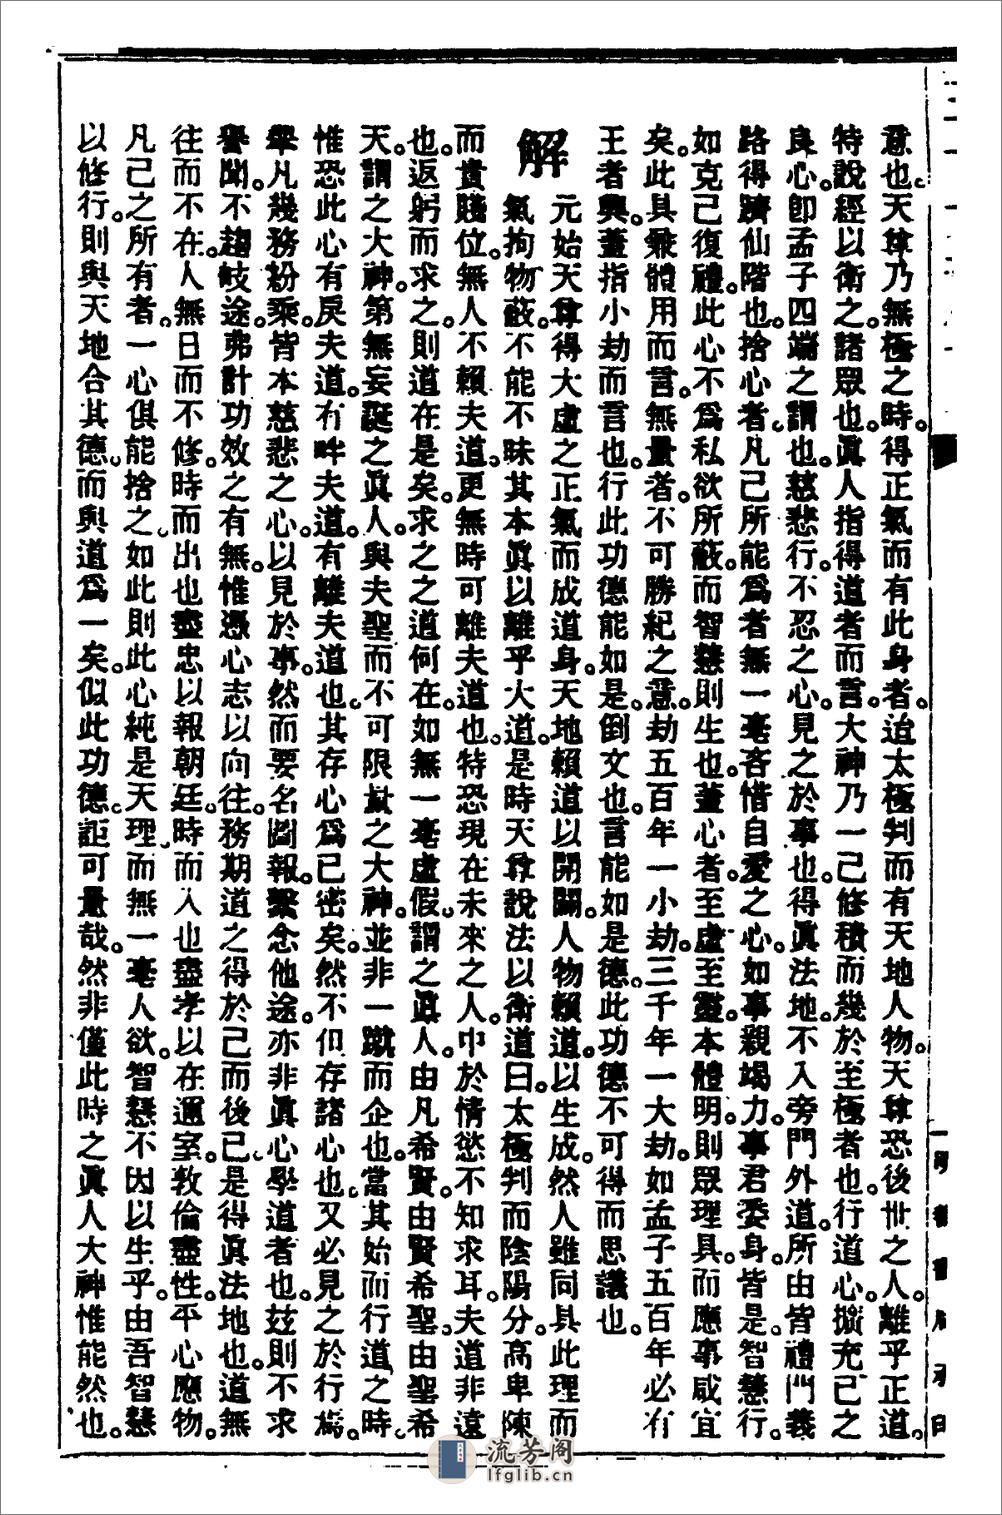 意也。天尊乃無極之時。得正氣而有此身者。治太極判而有天地人物。天尊恐後世之人。離乎正道。
特說經以衛之。諸眾也。眞人指得道者而言。大神乃一己修積而幾於至極者也。行道心。擴充己之
良心。卽孟子四端之謂也。慈悲行。不忍之心。見之於事也。得眞法地。不入旁門外道。所由皆禮門義
路。得躋仙階也。捨心者。凡己所能爲者。無一毫吝惜自愛之心。如事親竭力。事君委身。皆是。智慧行。
如克己復禮。此心不爲私欲所蔽。而智慧則生也。蓋心者。至虛至靈。本體明。則眾理具。而應事咸宜
矣。此具兼體用而言。無量者。不可勝紀之意。劫五百年一小劫。三千年一大劫。如孟子五百年必有
王者興。蓋指小劫而言也。行此功德能如是。倒文也。言能如是德。此功德不可得而思議也。
解
元始天尊得大虛之正氣而成道身。天地賴道以開闢。人物賴道以生成。然人雖同具此理。而
氣拘物蔽。不能不昧其本眞以離乎大道。是時天尊說法以衛道曰。太極判而陰陽分。高卑陳
而貴賤位。無人不賴夫道。更無時可離夫道也。特恐現在未來之人。巾於情慾。不知求耳。夫道非遠
也。返躬而求之。則道在是矣。求之之道何在。如無一毫虛假。謂之眞人。由凡希賢。由賢希聖。由聖希
天。謂之大神。第無妄誕之眞人。與夫聖而不可限量之大神。並非一蹴而企也。當其始而行道之時。
惟恐此心有戾夫道。有畔夫道。有離夫道也。其存心爲已密矣。然不但存諸心也。又必見之於行爲。
舉凡幾務紛乘。皆本慈悲之心。以見於事。然而要名圖報。繫念他途。亦非眞心學道者也。玆則不求
譽聞。不趨岐途。弗計功效之有無。惟憑心志以向往。務期道之得於己而後已。是得眞法地也。道無
往而不在。人無日而不修。時而出也。盡忠以報朝廷。時而入也。盡孝以在邇室。敦倫盡性。平心應物。
凡己之所有者。一心俱能捨之。如此則此心純是天理。而無一毫人欲。智慧不因以生乎。由吾智慧
以修行。則與天地合其德。而與道爲一矣。似此功德。詎可量哉。然非僅此時之眞人大神惟能然也。
流芳阁
lfglib.cn